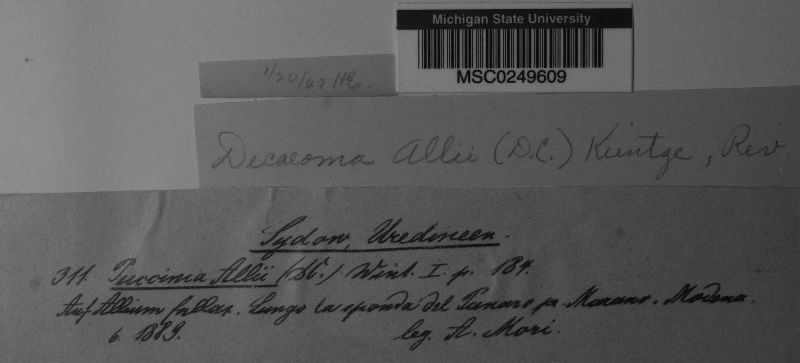 Michigan State University
MSC0249609
1/20/22
Dicaeoma Allii (D.C.) Kuntze, Rev.
Sydow, Uredineen.
311 Puccinia Allii (DC.) Wint. I. p. 184.
Auf Allium fallax. Lungo la sponda del Panaro pr. Marano. Modena.
6. 1889. leg. A. Mori.